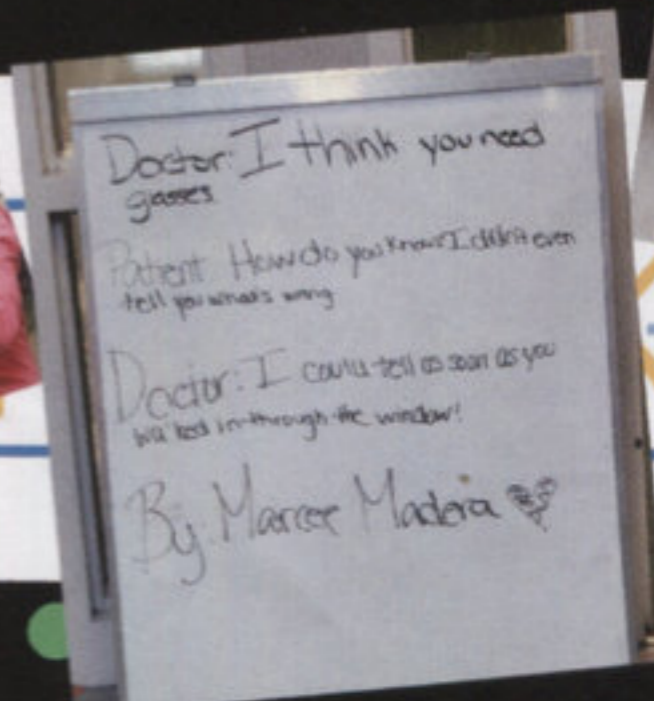 Doctor: I think you need
gasses
Patient How do you know I didn't even
tell you what's wrong
Doctor: I could tell as soon as you
walked in through the window!
By: Madera